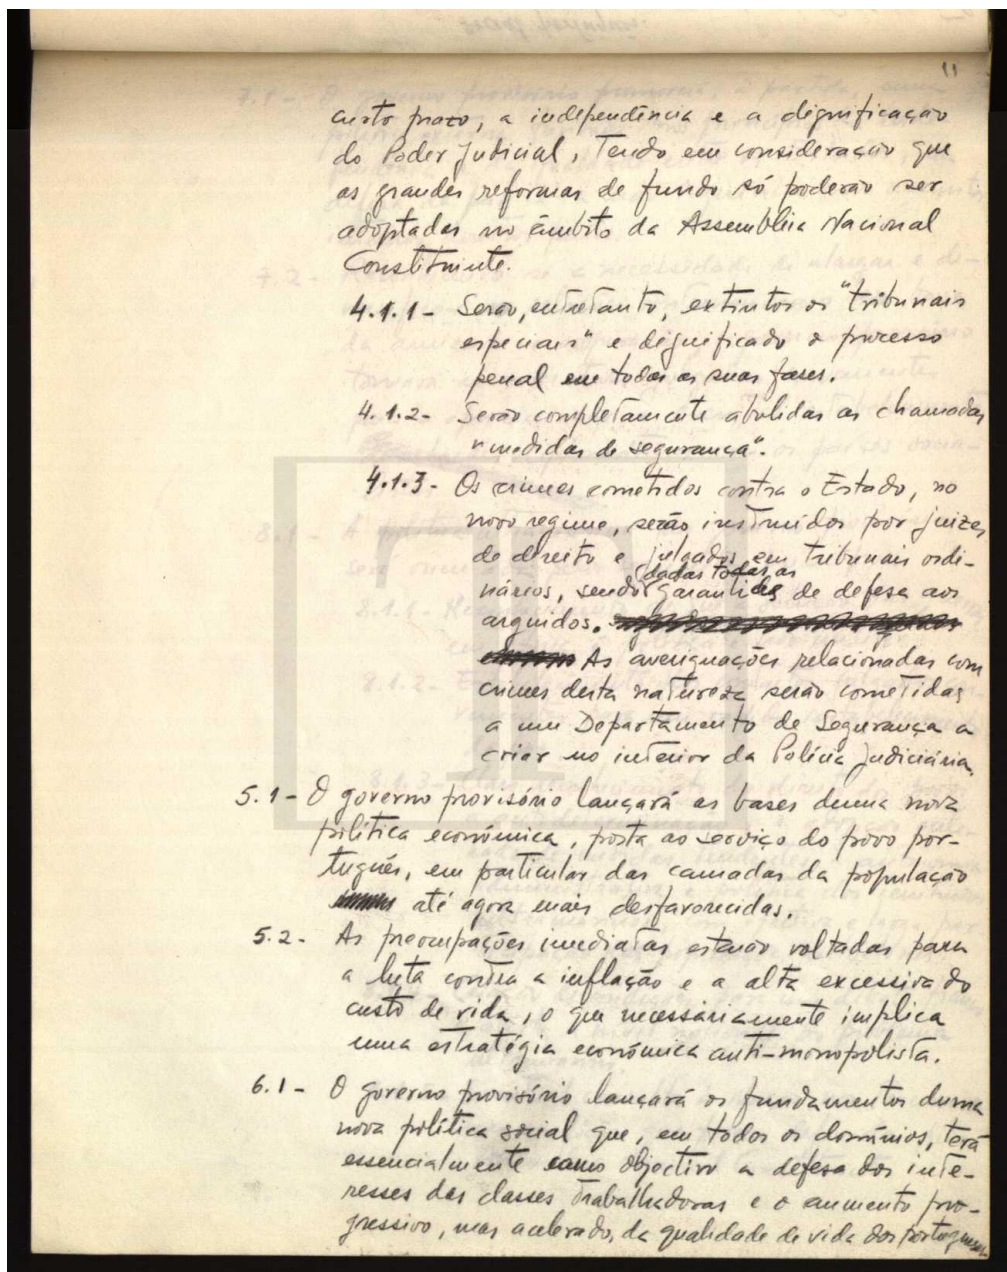 11
curto prazo, a independência e a dignificação
do Poder Judicial, Tendo em consideração que
as grandes reformas de fundo só poderão ser
adoptadas no âmbito da Assembleia Nacional
Constituinte.
4.1.1 - Serão, entretanto, extintos os "tribunais
especiais" e dignificado o processo
penal em todas as suas fases.
4.1.2 - Serão completamente abolidas as chamadas
"medidas de segurança".
4.1.3 - Os crimes cometidos contra o Estado, no
novo regime, serão instruídos por juizes
de direito e julgados em tribunais ordi-
nários, sendo dadas todas as garantias de defesa aos
arguidos.
As averiguações relacionadas com
crimes desta natureza serão cometidas
a um Departamento de Segurança a
criar no interior da Polícia Judiciária.
5.1 - O governo provisório lançará as bases duma nova
política económica, posta ao serviço do povo por-
tuguês, em particular das camadas da população
até agora mais desfavorecidas.
5.2 - As preocupações imediatas estarão voltadas para
a luta contra a inflação e a alta excessiva do
custo de vida, o que necessáriamente implica
uma estratégia económica anti-monopolista.
6.1 - O governo provisório lançará os fundamentos duma
nova política social que, em todos os domínios, terá
essencialmente como objectivo a defesa dos inte-
resses das classes trabalhadoras e o aumento pro-
gressivo, mas acelerado, da qualidade de vida dos portugueses